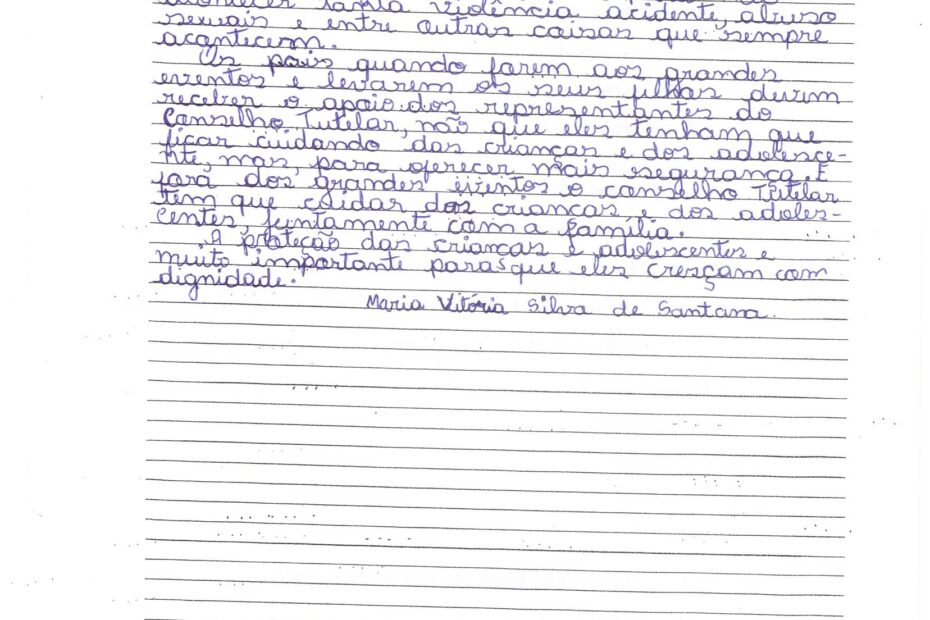 acontecer tanta violência acidente, abuso
sexuais e entre outras coisas que sempre
acontecem.
Os pais quando forem aos grandes
eventos e levarem os seus filhos devem
receber o apoio dos representantes do
Conselho Tutelar, não que eles tenham que
ficar cuidando das crianças e dos adolesce-
nte, mas, para oferecer mais segurança. E
fora dos grandes eventos o conselho Tutelar
tem que cuidar das crianças e dos adoles-
centes juntamente com a família.
A proteção das crianças e adolescentes e
muito importante para que eles cresçam com
dignidade.
Maria Vitória Silva de Santana.